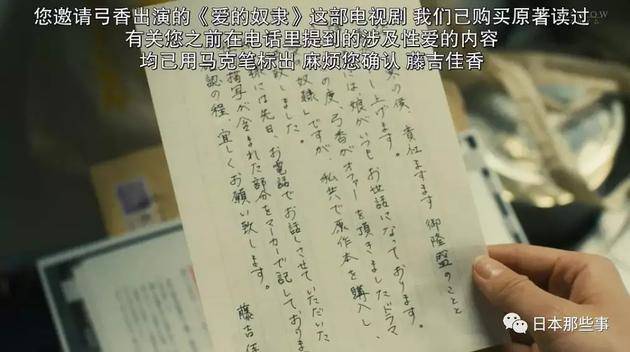 您邀请弓香出演的《爱的奴隶》这部电视剧 我们已购买原著读过
有关您之前在电话里提到的涉及性爱的内容
均已用马克笔标出 麻烦您确认 藤吉佳香
の候、貴社ますます御隆盛のことと
し上げます。
には娘がいつもお世話になっております。
の度、弓香がオファーを頂きましたドラマ
奴隷』ですが、私共で原作本を購入し、
致しました。
様には先日、お電話でお話しさせていただいた
描写が含まれた部分をマーカーで記しておりま
認の程、宜しくお願い致します。
藤吉佳
日本那些事